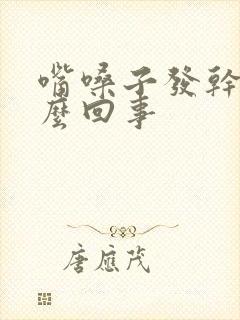 嘴嗓子發幹
麼回事
唐應茂